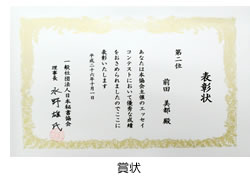 表彰状
第二位
前田 美都 殿
あなたは本協会主催のエッセイ
コンテストにおいて優秀な成績
をおさめられましたのでここに
表彰いたします
平成二十六年十月一日
一般社団法人日本秘書協会
理事長
賞状